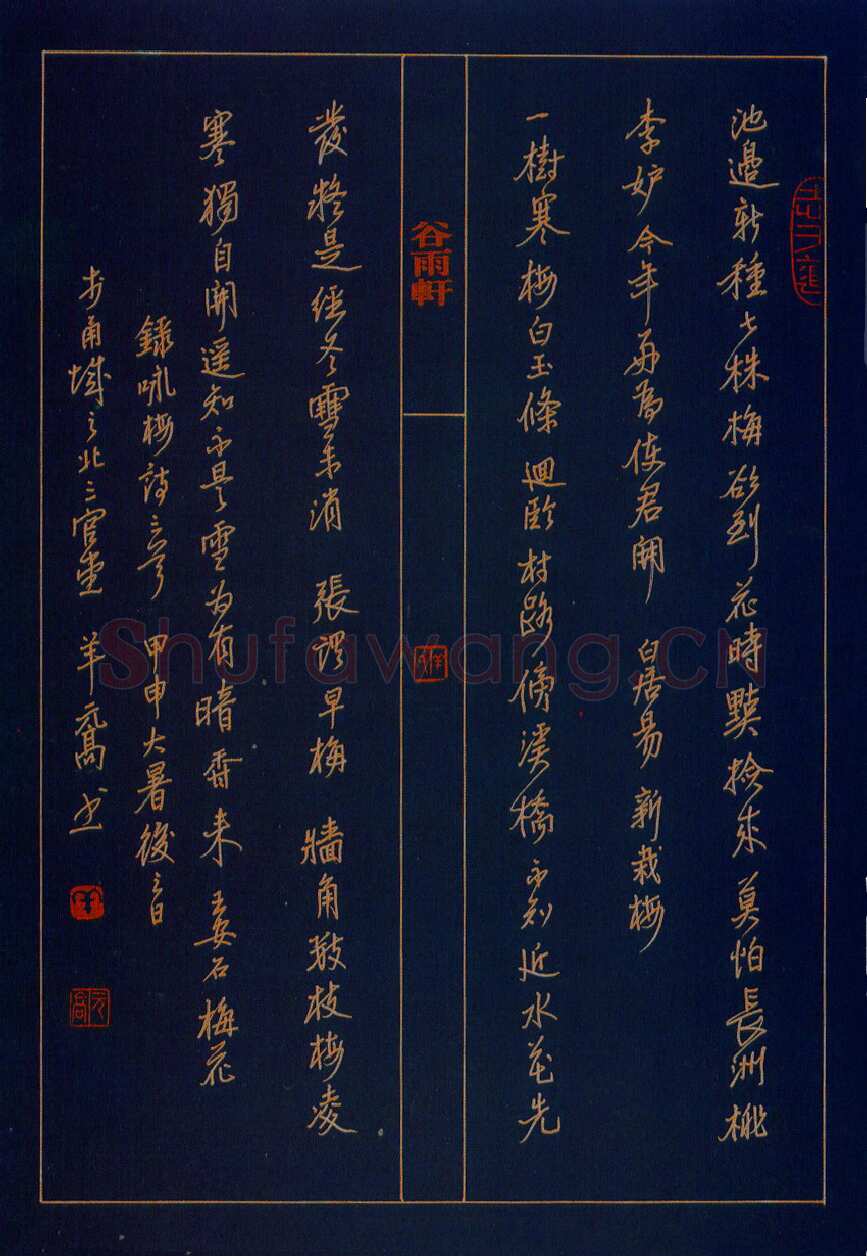 池邊新種七株梅欲到花時點撿來莫怕長洲桃
李妒今年好為使君開 白居易新栽梅
一樹寒梅白玉條 迴臨村路傍溪橋不知近水花先
谷雨軒
發疑是經冬雪未消 張謂早梅 牆角數枝梅凌
寒獨自開遥知不是雪为有暗香来 王安石梅花
錄咏梅詩三首 甲申大暑後三日
甬城之北三官堂 羊元髙书
Shufawang.CN